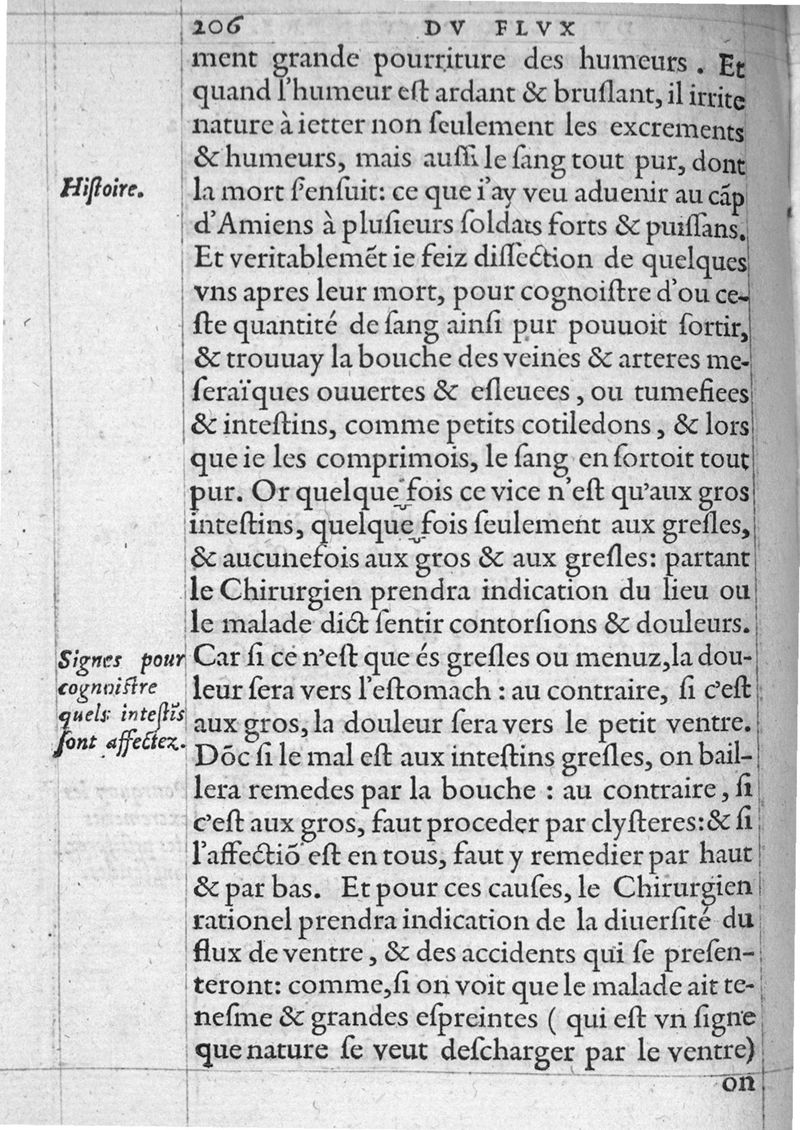 206 DV FLVX
ment grande pourriture des humeurs. Et
quand l'humeur eſt ardant & bruſlant, il irrite
nature à ietter non ſeulement les excrements
& humeurs, mais auſſi le ſang tout pur, dont
Hiſtoire.
la mort ſ'enſuit: ce que i'ay veu aduenir au cãp
d'Amiens à pluſieurs ſoldats forts & puiſſans.
Et veritablemẽt ie feiz diſſection de quelques
vns apres leur mort, pour cognoiſtre d'ou ce-
ſte quantité de ſang ainſi pur pouuoit ſortir,
& trouuay la bouche des veines & arteres me-
ſeraïques ouuertes & eſleuees, ou tumefiees
& inteſtins, comme petits cotiledons, & lors
que ie les comprimois, le ſang en ſortoit tout
pur. Or quelque‿fois ce vice n'eſt qu'aux gros
inteſtins, quelque‿fois ſeulement aux greſles,
& aucunefois aux gros & aux greſles: partant
le Chirurgien prendra indication du lieu ou
le malade dict ſentir contorſions & douleurs.
Signes pour
cognoiſtre
quels inteſtĩs
ſont affectez.
Car ſi ce n'eſt que és greſles ou menuz, la dou-
leur ſera vers l'eſtomach: au contraire, ſi c'eſt
aux gros, la douleur ſera vers le petit ventre.
Dõc ſi le mal eſt aux inteſtins greſles, on bail-
lera remedes par la bouche: au contraire, ſi
c'eſt aux gros, faut proceder par clyſteres: & ſi
l'affectiõ eſt en tous, faut y remedier par haut
& par bas. Et pour ces cauſes, le Chirurgien
rationel prendra indication de la diuerſité du
flux de ventre, & des accidents qui ſe preſen-
teront: comme, ſi on voit que le malade ait te-
neſme & grandes eſpreintes ( qui eſt vn ſigne
que nature ſe veut deſcharger par le ventre)
on